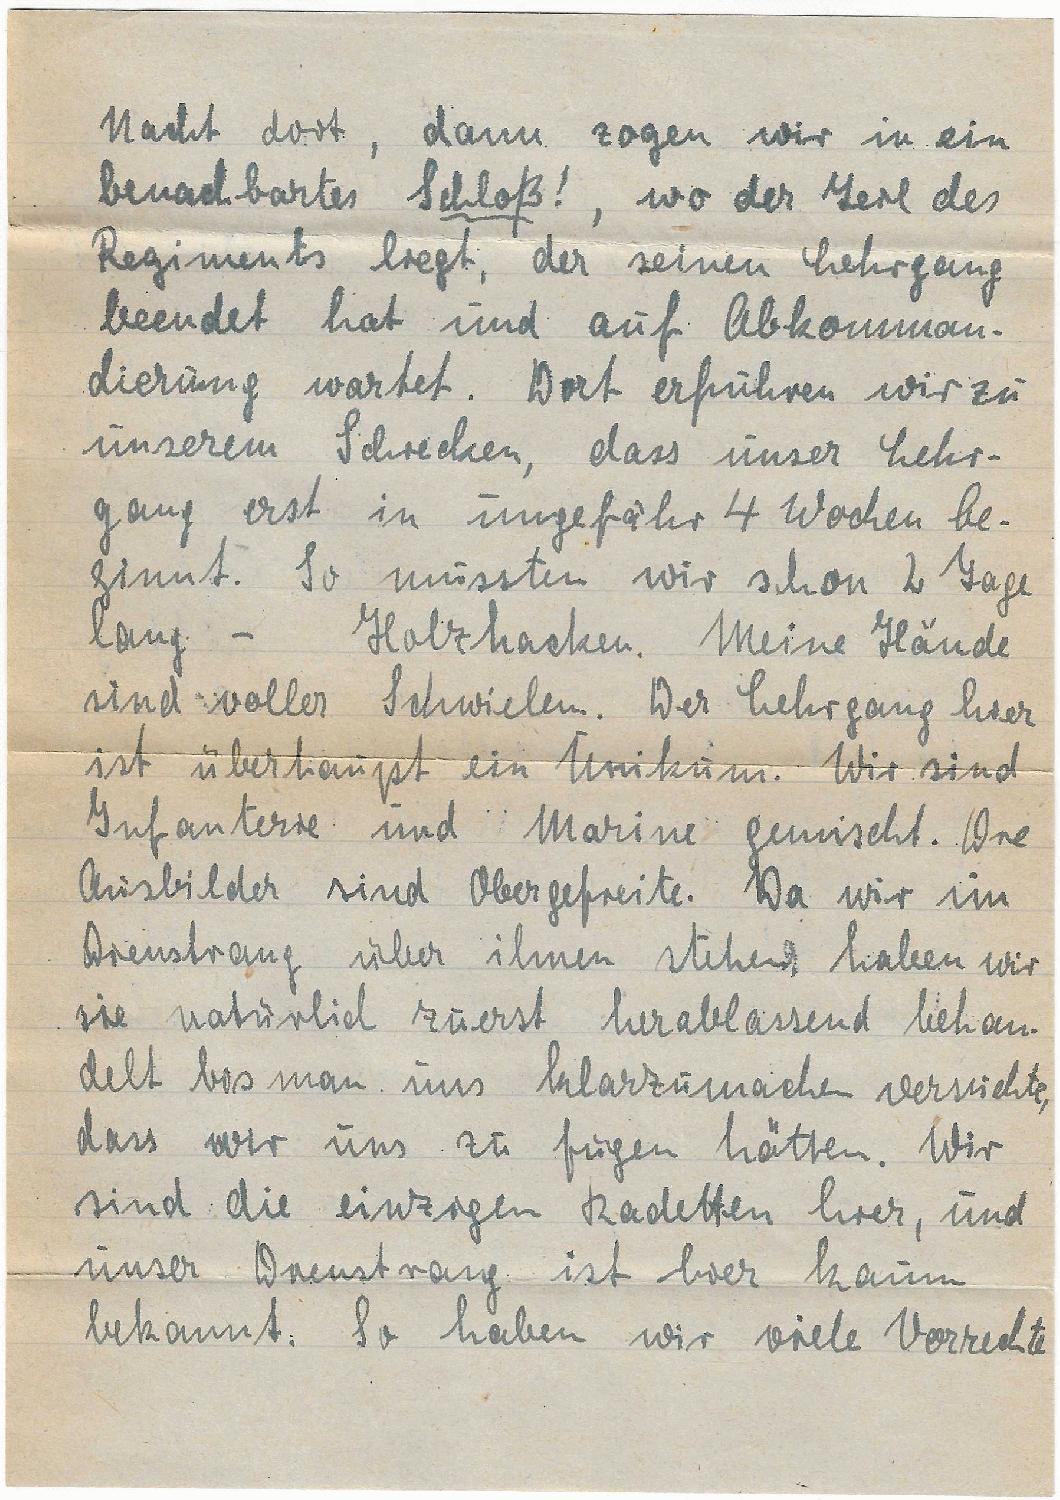 Nacht dort, dann zogen wir in ein
benachbartes Schloß!, wo der Teil des
Regiments liegt, der seinen Lehrgang
beendet hat und auf Abkomman-
dierung wartet. Dort erfuhren wir zu
unserem Schrecken, dass unser Lehr-
gang erst in ungefähr 4 Wochen be-
ginnt. So mussten wir schon 2 Tage
lang - Holzhacken. Meine Hände
sind voller Schwielen. Der Lehrgang hier
ist überhaupt ein Unikum. Wir sind
Infanterie und Marine gemischt. Die
Ausbilder sind Obergefreite. Da wir im
Dienstrang über ihnen stehen, haben wir
sie natürlich zuerst herablassend behan-
delt bis man uns klarzumachen versuchte,
dass wir uns zu fügen hätten. Wir
sind die einzigen Kadetten hier, und
unser Dienstrang ist hier kaum
bekannt. So haben wir viele Vorrechte